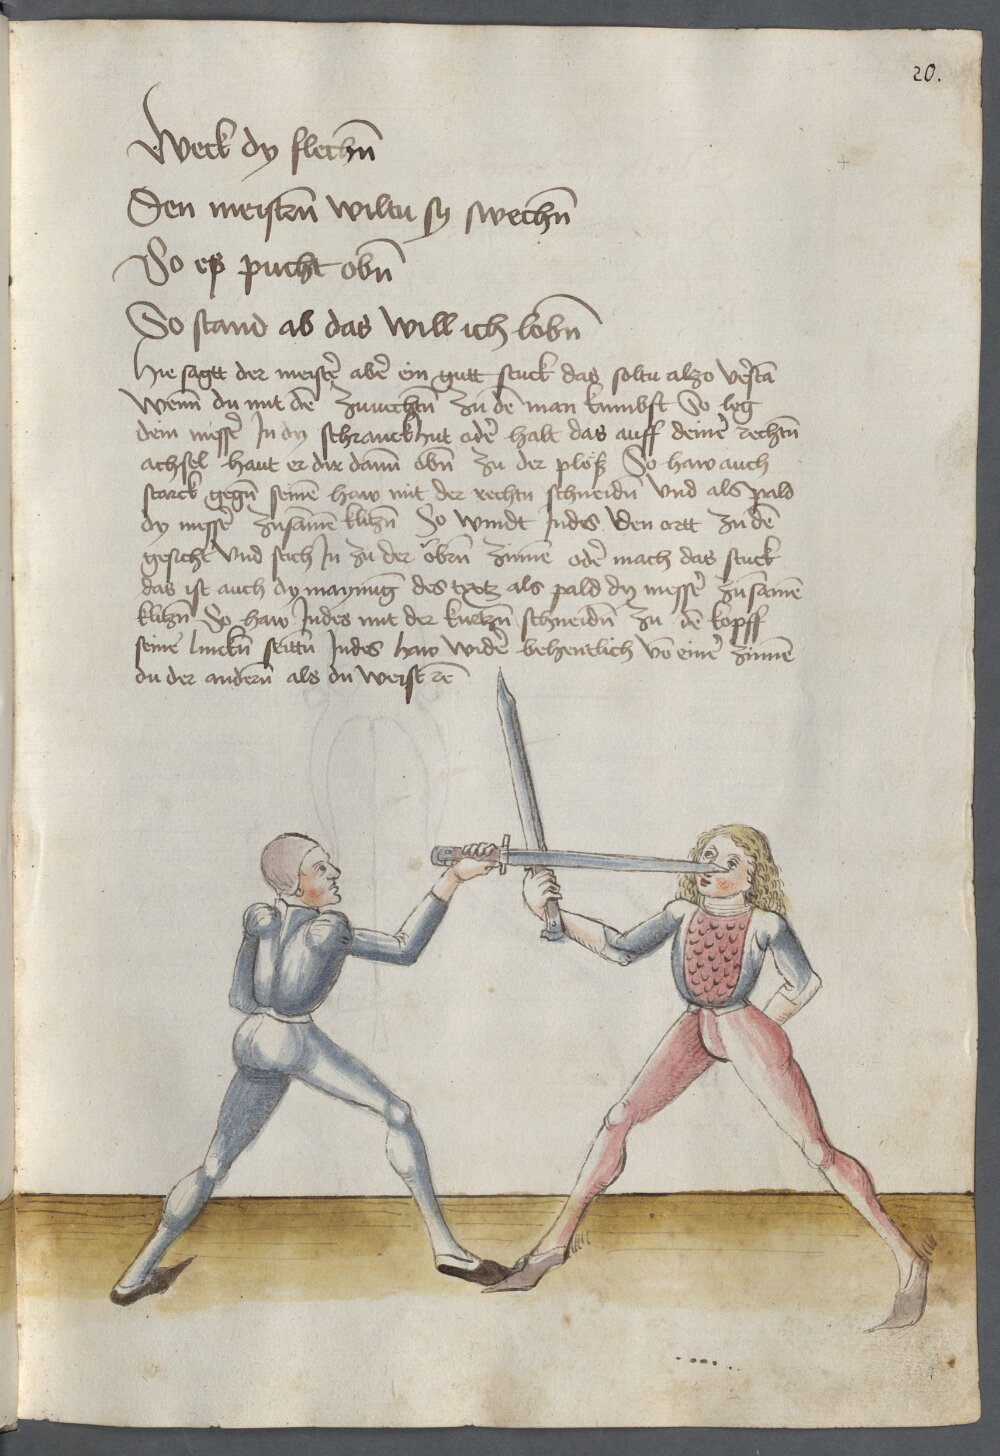 20.
Weck dy flechn̄
Den meistrn̄ wiltu sy swechn̄
So es pucht obn̄
So stand ab das will ich lobn̄
Hie sagtt der meist̄e abē ein gutt stuck das soltu alzo vēstā
Wenn̄ du mit dē zuuechtn̄ zu dē man kumbst So leg
dein messē In dy schranckhut odē halt das auff deinē rechtn̄
achsel haut er dir dann̄ obn̄ zu der plöß So haw auch
starck gegn̄ seinē haw mit der rechtn schneidn̄ vnd als pald
dy messē zusāmē klitzn̄ So windt Indes den ortt zu dē
gesicht vnd stich In zu der öbrn̄ zinnē odē mach das stuck
das ist auch dy maynūg des textz als pald dy messē zusāmē
klitzn̄ So haw Indes mit der kurtzn̄ schneidn̄ zu dē kopff
seinē linckn̄ seittn̄ Indes haw widē behentlich vō einē zinnē
zu der andern̄ als du weist rē